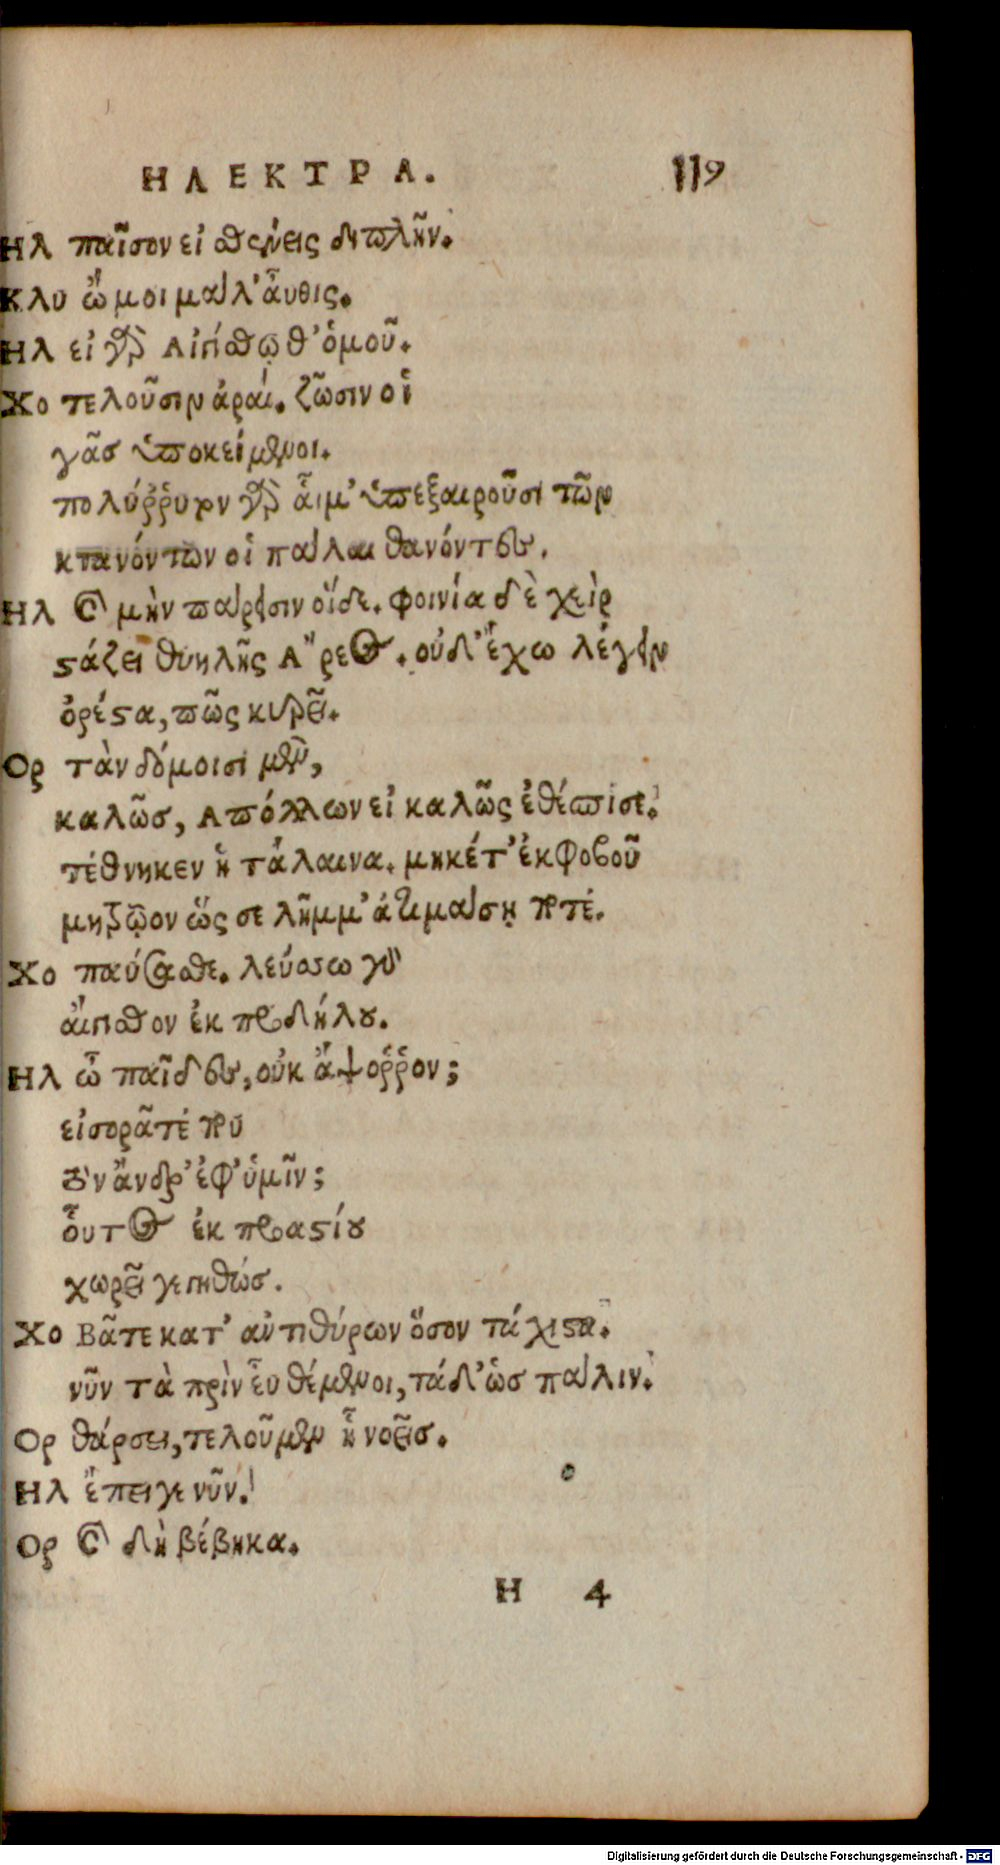 ΗΛΕΚΤΡΑ. 119
Ηλ παῖσον εἰ σθένεις διπλῆν.
Κλυ ὤμοι μάλ' ἆυθις.
Ηλ εἰ γὰρ Αἰγίσθῳ θ' ὁμοῦ.
Χο τελοῦσιν ἀραί. ζῶσιν οἱ
γᾶσ ὑποκείμενοι.
πολύῤῥυτον γὰρ ἇιμ' ὑπεξαιροῦσι τῶν
κτανόντων οἱ πάλαι θανόντες.
Ηλ καὶ μὴν πάρεισιν οἵδε. φοινία δὲ χεὶρ
στάζει θυηλῆς Ἄρεος. οὐδ' ἔχω λέγειν
ὀρέστα, πῶς κυρεῖ.
Ορ τὰν δόμοισι μὲν,
καλῶσ, Απόλλων εἰ καλῶς ἐθέσπισε.
τέθνηκεν ἡ τάλαινα. μηκέτ' ἐκφοβοῦ
μητρῷον ὥς σε λῆμμ' ἀτιμάσῃ ποτέ.
Χο παύσασθε. λεύσσω γὰρ
αἴγισθον ἐκ προδήλου.
Ηλ ὦ παῖδες, οὐκ ἄψοῤῥον;
εἰσορᾶτέ που
τὸν ἄνδρ' ἐφ' ὑμῖν;
οὗτος ἐκ προαστίου
χωρεῖ γεγηθώσ.
Χο Βᾶτε κατ' ἀντιθύρων ὅσον τάχιστα.
νῦν τὰ πρὶν εὖ θέμενοι, τάδ' ὡσ πάλιν.
Ορ θάρσει, τελοῦμεν ἧ νοεῖσ.
Ηλ ἔπειγε νῦν.
Ορ καὶ δὴ βέβηκα.
Η 4
Digitalisierung gefördert durch die Deutsche Forschungsgemeinschaft - DFG